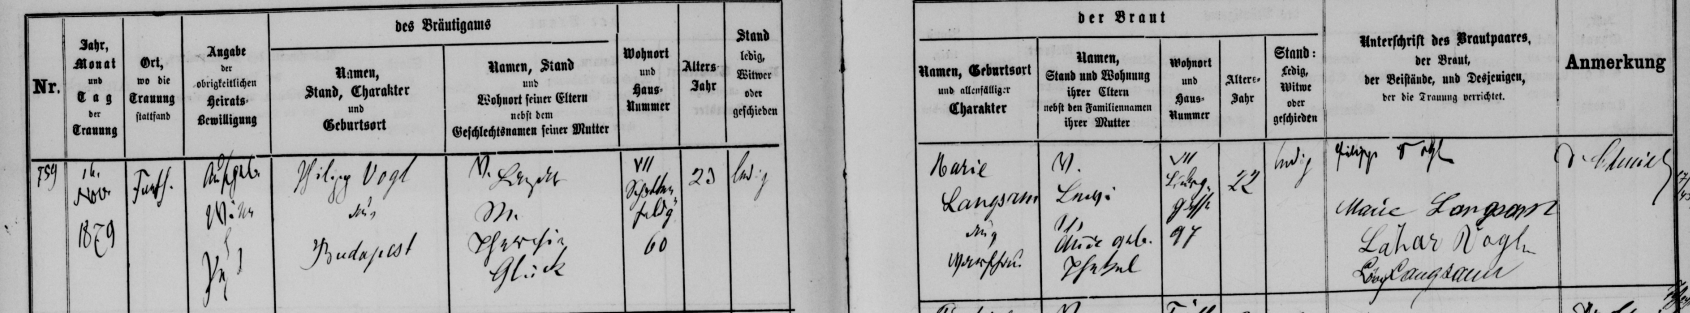 des Bräutigams
Nr.
Jahr,
Monat
und
Tag
der
Trauung
Ort,
wo die
Trauung
stattfand
Angabe
der
obrigkeitlichen
Heirats-
Bewilligung
Namen,
Stand, Charakter
und
Geburtsort
Namen, Stand
und
Wohnort seiner Eltern
nebst dem
Geschlechtsnamen seiner Mutter
Wohnort
und
Haus-
Nummer
Alters-
Jahr
Stand
ledig,
Witwer
oder
geschieden
759
16.
Nov.
1879
Fünfh.
Aufgeb.
Wien
Philipp Vogl
aus
Budapest
V.
Lazar
M.
Theresia
Glück
VII
Schotten
feldg
60
23
ledig
der Braut
Namen, Geburtsort
und allenfälliger
Charakter
Namen,
Stand und Wohnung
ihrer Eltern
nebst den Familiennamen
ihrer Mutter
Wohnort
und
Haus-
Nummer
Alters-
Jahr
Stand:
Ledig,
Witwe
oder
geschieden
Unterschrift des Brautpaares,
der Braut,
der Beistände, und Desjenigen,
der die Trauung verrichtet.
Anmerkung
Marie
Langsam
aus
V.
geb.
VII
97
22
ledig
Philipp Vogl
Marie Langsam
Lazar Vogl
Langsam